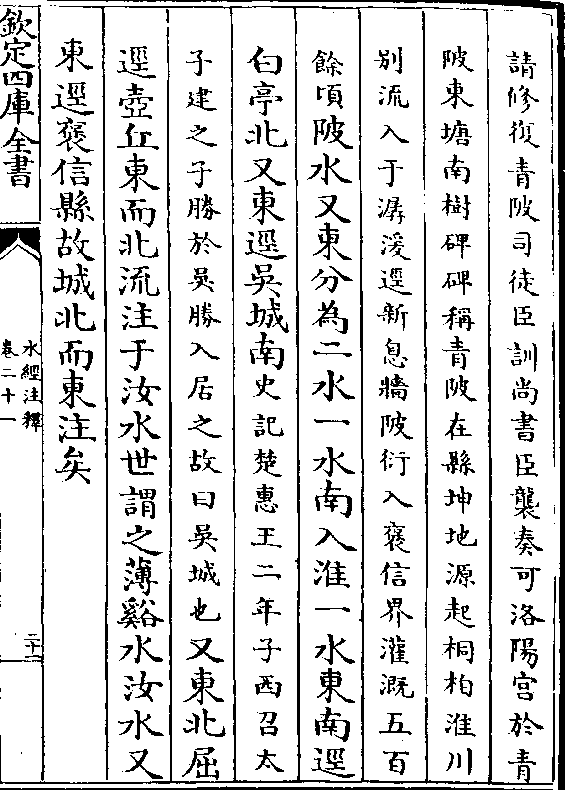 請修復青陂司徒臣訓尚書臣襲奏可洛陽宮於青
陂東塘南樹碑碑稱青陂在縣坤地源起桐柏淮川
别流入于潺湲逕新息牆陂衍入襃信界灌溉五百
餘頃陂水又東分為二水一水南入淮一水東南逕
白亭北又東逕吳城南史記楚惠王二年子西召太
子建之子勝於吳勝入居之故曰吳城也又東北屈
逕壺丘東而北流注于汝水世謂之薄谿水汝水又
東逕襃信縣故城北而東注矣
欽定四庫全書
水經注釋
卷二十一
二十二